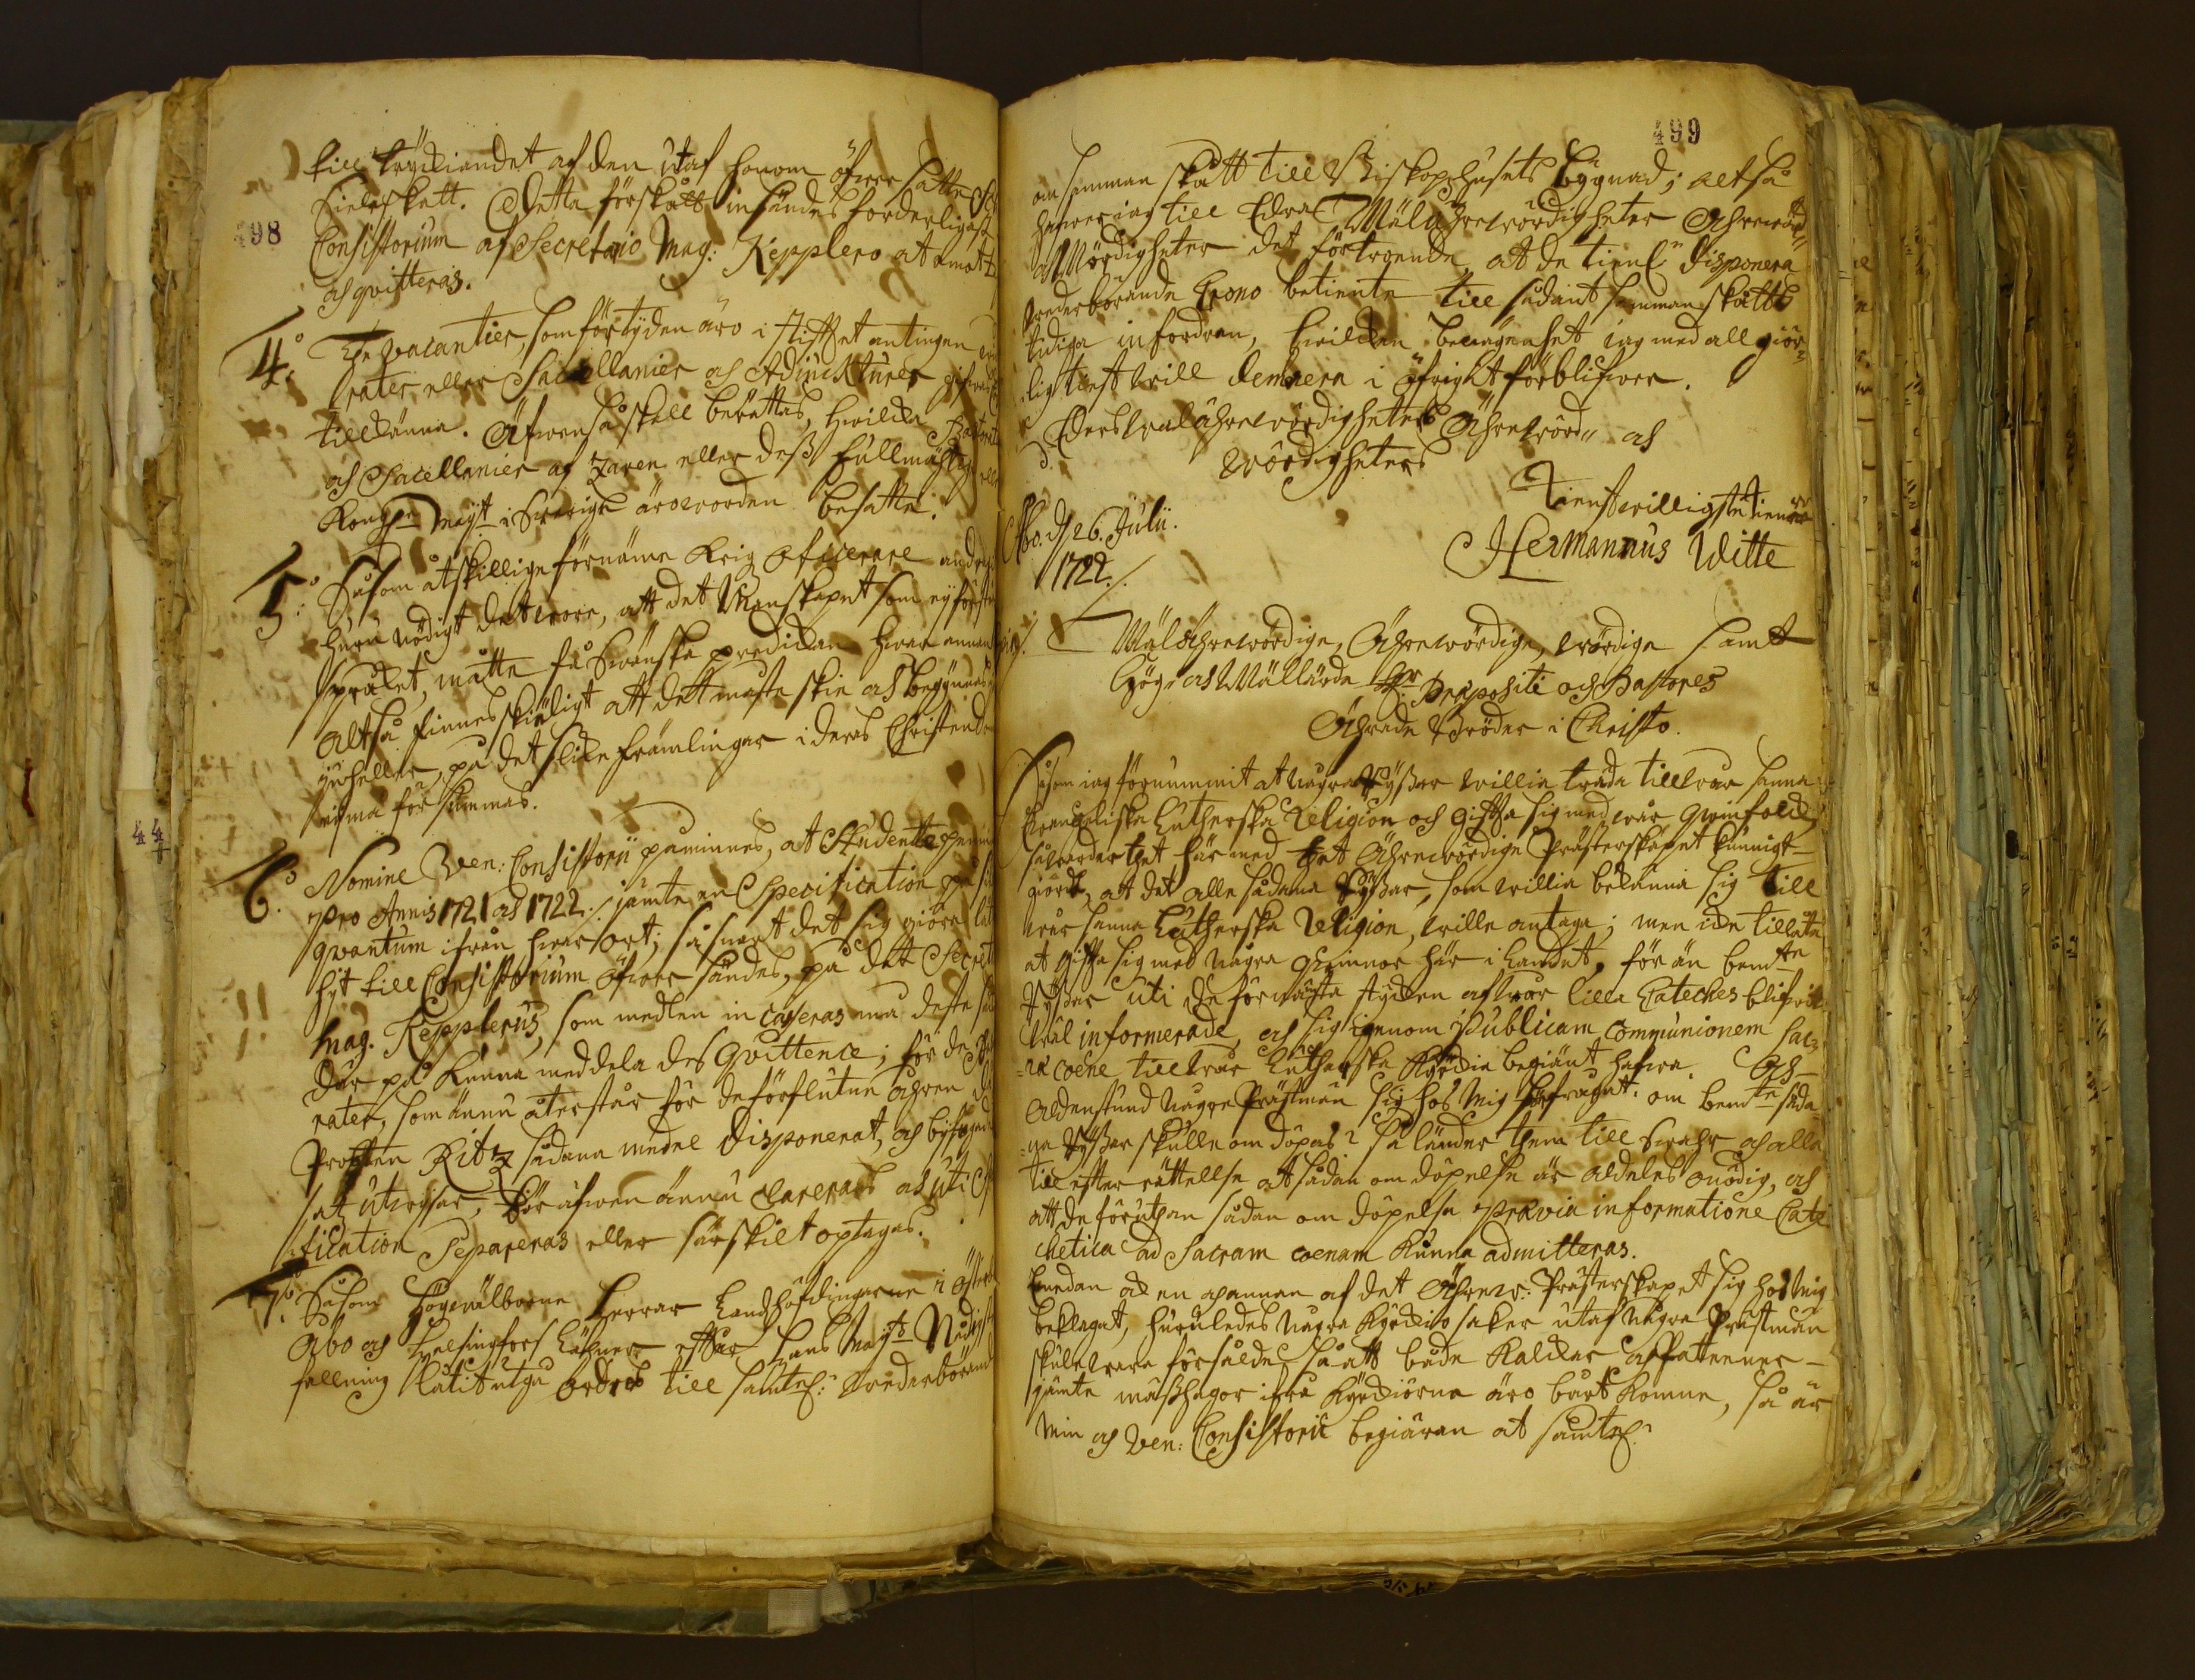 498
till tryckiandet af den utaf honom öfwer satte
Sielaskatt. Detta förskått insändes forderligast
Consistorium af Secretario Mag: Kepplero at emott
och qvitteras.
4:o The Vacantier, som för tyden äro i stifftet antingen
rater, eller Sacellanier och Adiuncturer gifwas
tillkänna. Äfwen så skall berättas, hwilka Pastorat
och Sacellanier af Zaren eller dess fullmächtig eller
Kongl. Mayt i Swerige äro worden besatte.
5:o Såsom åtskillige förnäme Krigs Officerare andrag
huru nödigt det wore, att det Manskapet som ey förstå
språket, måtte få Swänska predikan hwar annan
altså finnes skiäligt att det måste skie och begynnas
på det slike främlingar i deras Christendom
eij må försummas.
6:o Nomine Ven: Consistorii påminnes, at Studentepenningar
pro Annis 1721 och 1722. jämte en Specification på
qvantum ifrån hwar ort; så snart det sig giöra låter
hijt till Consistorium öfwer sändes, på det Secret
Mag. Kepplerus, som medlen incasseras må desse
der på kunna meddela des Qvittence; för de
rater, som ännu återstår för de förflutne åhren
Probsten Ritz sådana medel disponerat, och
sat utwijsar, bör äfwen ännu Careras och uti
fication Separeras eller särskilt optagas.
7:o Såsom Högwälborne Herrar Landshöfdingarne i Österb
Åbo och Helsingfors Lähner efter Hans Mayts Nådigst
fallning låtit utgå ordres till samtel: wederbörand
44
499
om samman skått till Biskopshusets bygnad; altså
hafwer iag till Edra Wälährewördigheter Ährewörd
och Wördigheter det förtroende, at de tienl. disponera
wederbörande Crono betiente till sådant samman skåtts
tidiga infordran, hwilken benägenhet iag med all giör-
ligtienst will demerera i öfrigt förblifwer.
Eders Wälährewördigheters Ährewörd och
Wördigheters
Tienstwilligste tienare
Hermannus Witte
Åbo. d. 26. Julii.
1722.
Wälährewördige, Ährewördige, wördige samt
Hög och Wällärde Hr Præpositi och Pastores
Ährade Bröder i Christo.
Såsom iag förnummit at några Ryssar willia träda till wår sanna
Evangeliska Lutherska Religion och gifta sig med wår qwinfolck,
så warder thet här med thet Ährewördige Prästerskapet kunnigt
giordt, at det alla sådana Ryssar, som willia bekänna sig till
wår sanna Lutherska Religion, wille antaga; men icke tillåta
at gifta sig med några qwinnor här i Landet, för än bemte
Ryssar uti de förnämsta stycken af wår lilla Cateches blifwit
wäl informerade, och sig igenom Publicam Communionem Sac-
ræ Coenæ till wår Lutherska Kyrckia begiänt hafwa. Och
aldenstund några Prästmän sig hos mig förfrågat. om bemte såda
na Ryssar skulle om döpas? så länder them till swahr och alla
till efter rättellse at sådan om döpelse är aldeles onödig, och
att de förutan sådan om döpelse prævia informatione Cate
chetica ad Sacram coenam kunna admitteras.
Emedan ock en och annan af det Ährew: Prästerskapet sig hos mig
beklagat, huruledes några Kyrckios saker utaf några Prästmän
skule wara försålde så att både Kalckar och Patener
jämte mässhagor ifrå Kyrckiorna äro bårt komne, så är
min och Ven: Consistorii begiäran at samtel: